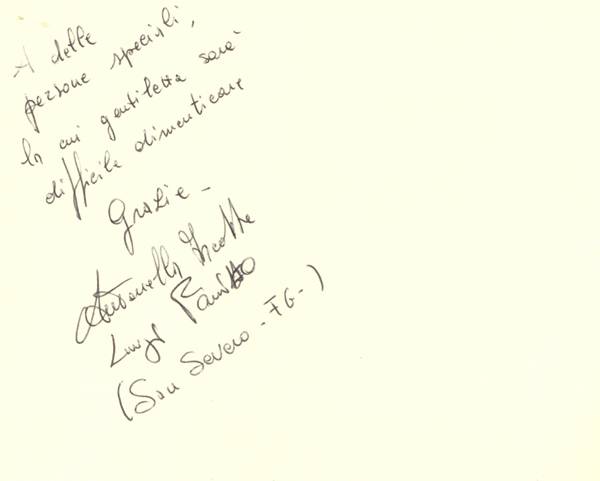 A delle
persone speciali,
la cui gentilezza sarà
difficile dimenticare
Grazie -
Antonella
Luigi
(San Severo - FG - )